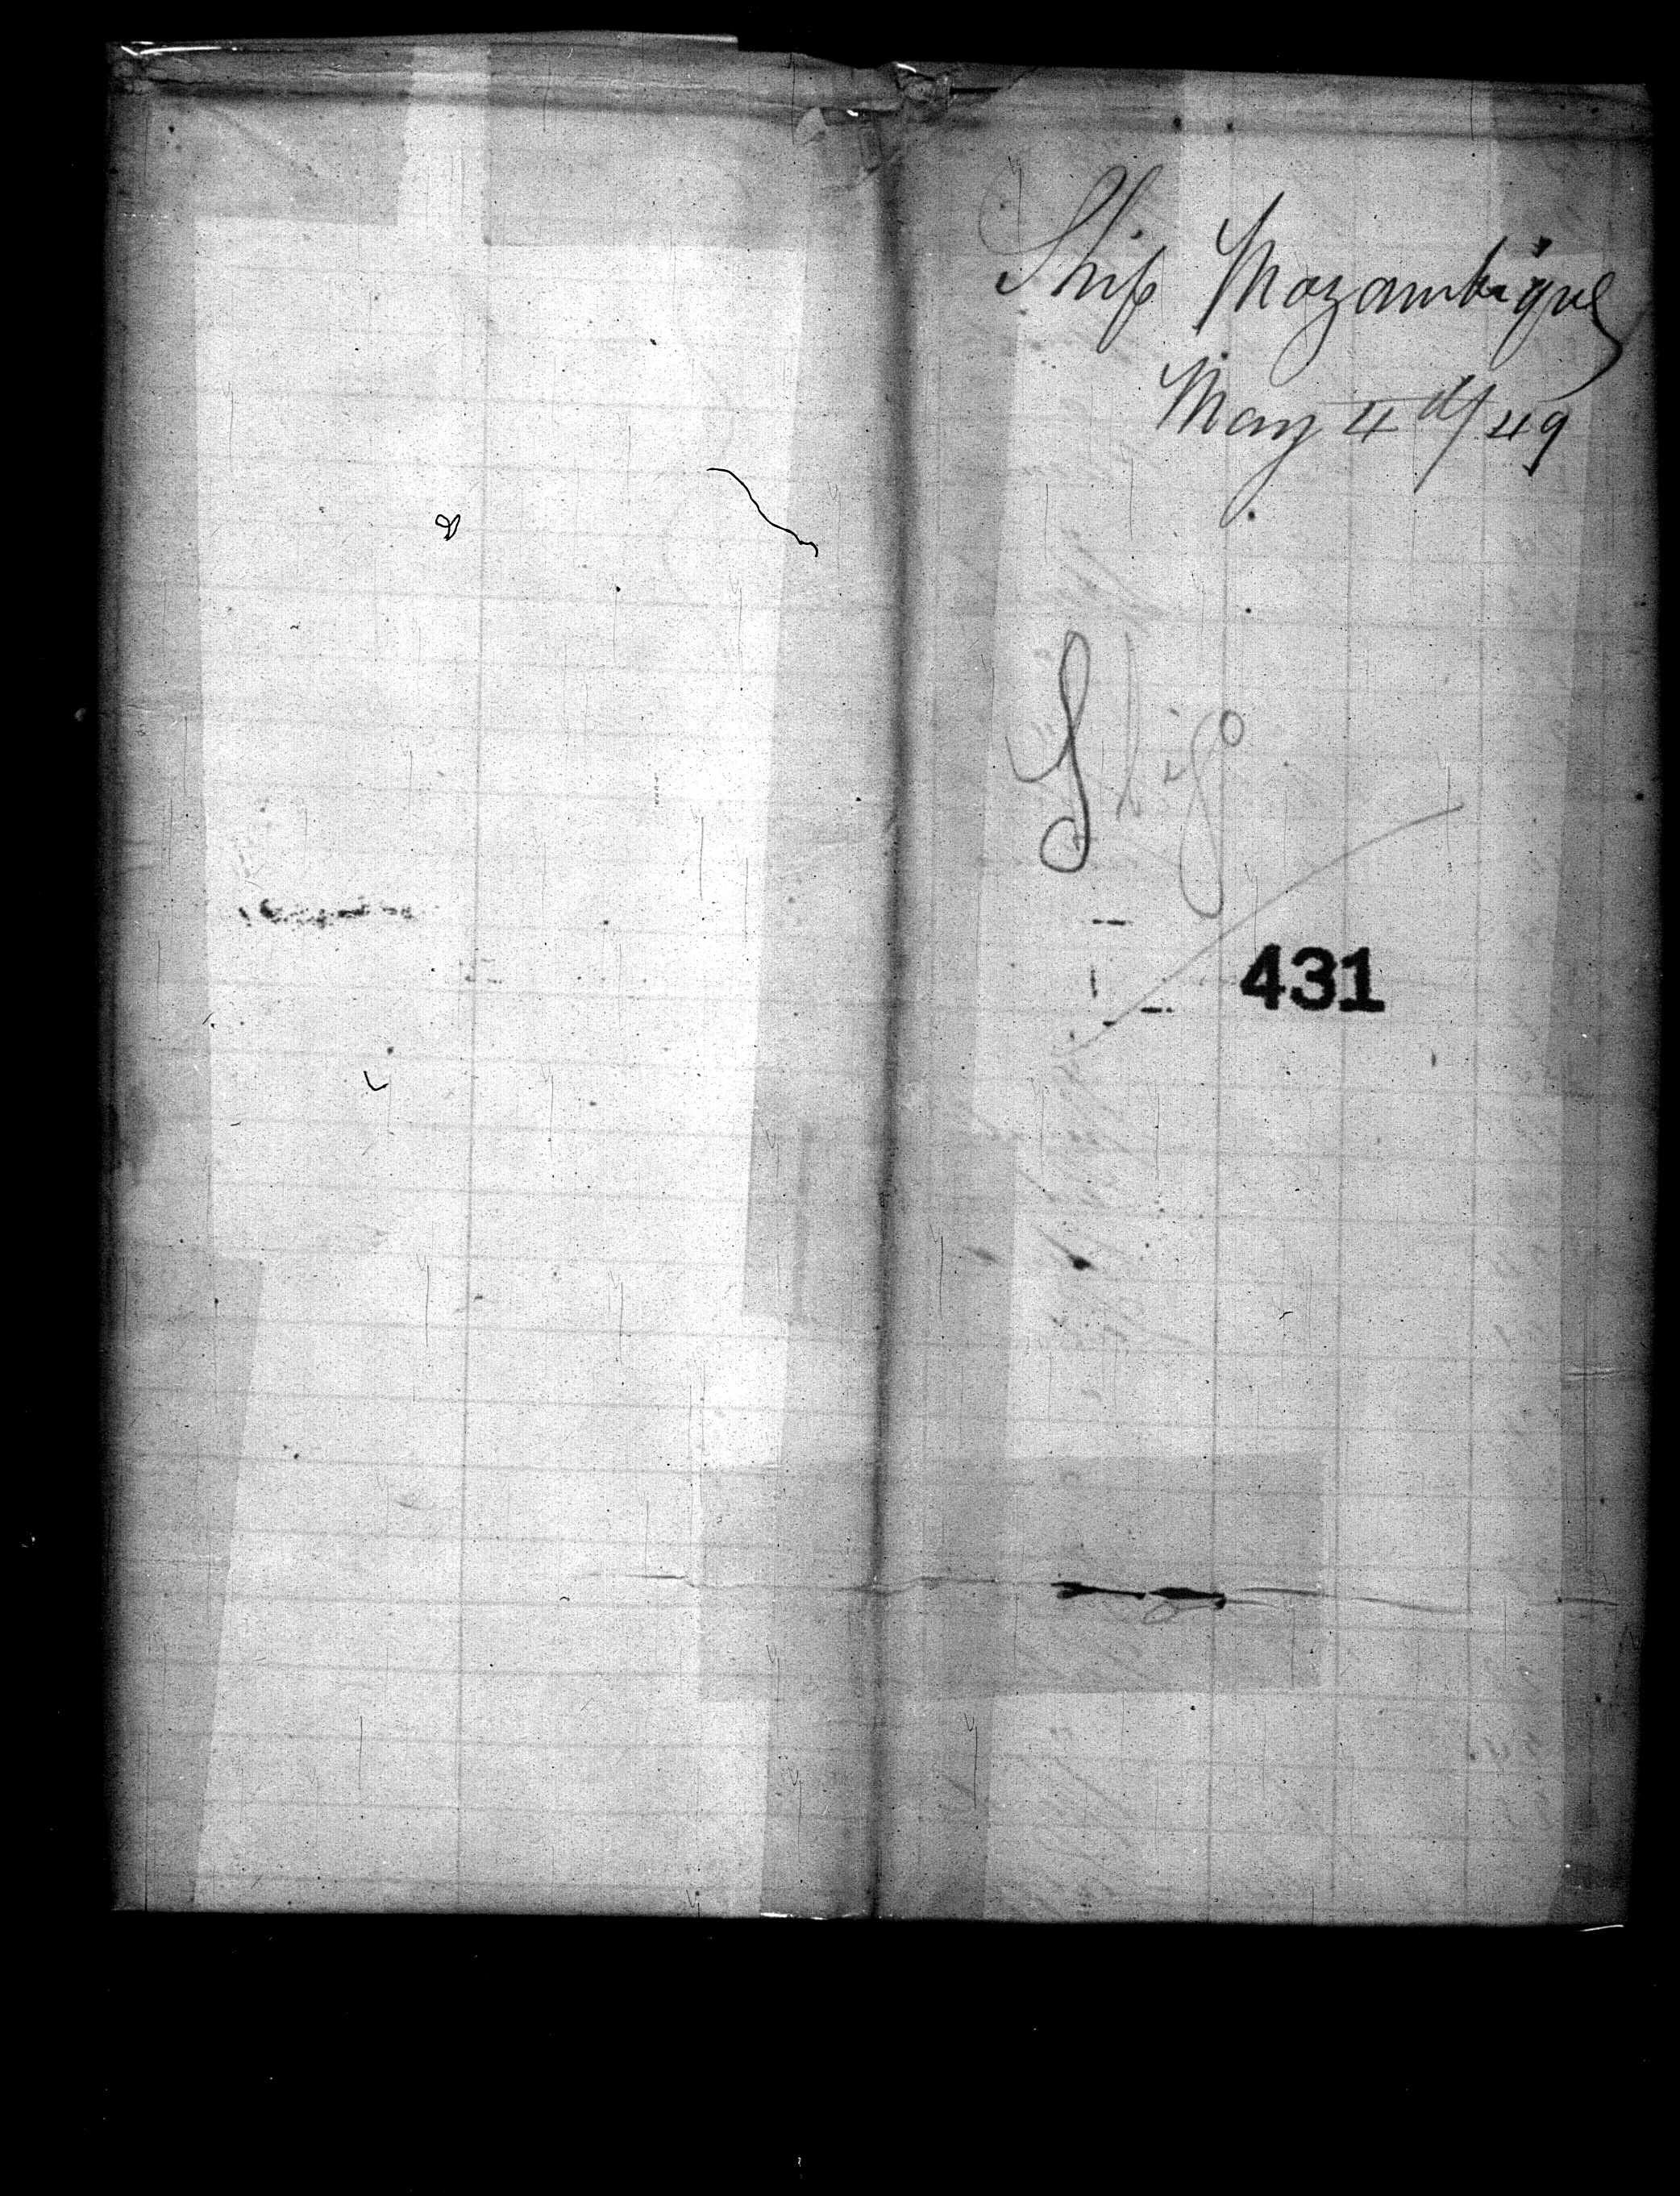 Ship Mozambique
May 4th/49
Sligo
431